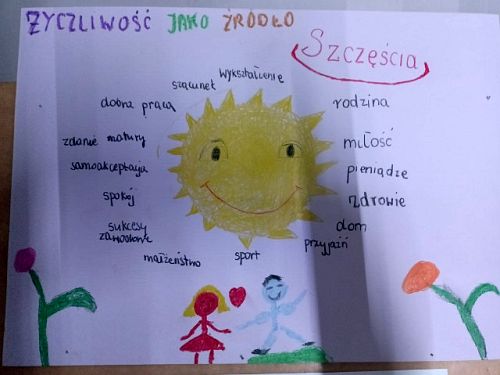 ŻYCZLIWOŚĆ JAKO ŹRÓDŁO
Szczęścia
wykształcenie
szacunek
dobra praca
zdanie matury
samoakceptacja
spokój
sukcesy
zawodowe
małżeństwo
sport
przyjaźń
dom
zdrowie
pieniądze
miłość
rodzina